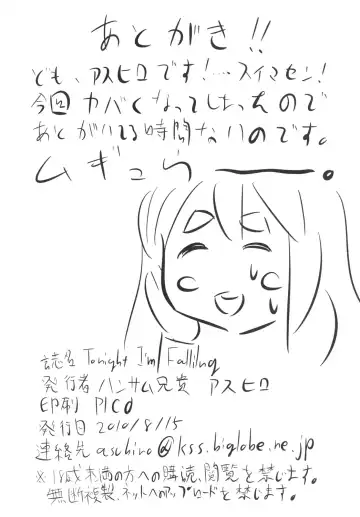 あとがき!!
ども、アスヒロです!…スイマセン!
今回ヤバくなってしまったので
あとがいてる時間ないのです。
ムギュらー。
誌名 Tonight I'm Falling
発行者 ハンサム兄貴 アスヒロ
印刷 PICO
発行日 2010/8/15
連絡先 asuhiro@kss.biglobe.ne.jp
※18歳未満の方への購読、閲覧を禁じます。
無断複製、ネットへのアップロードを禁じます。